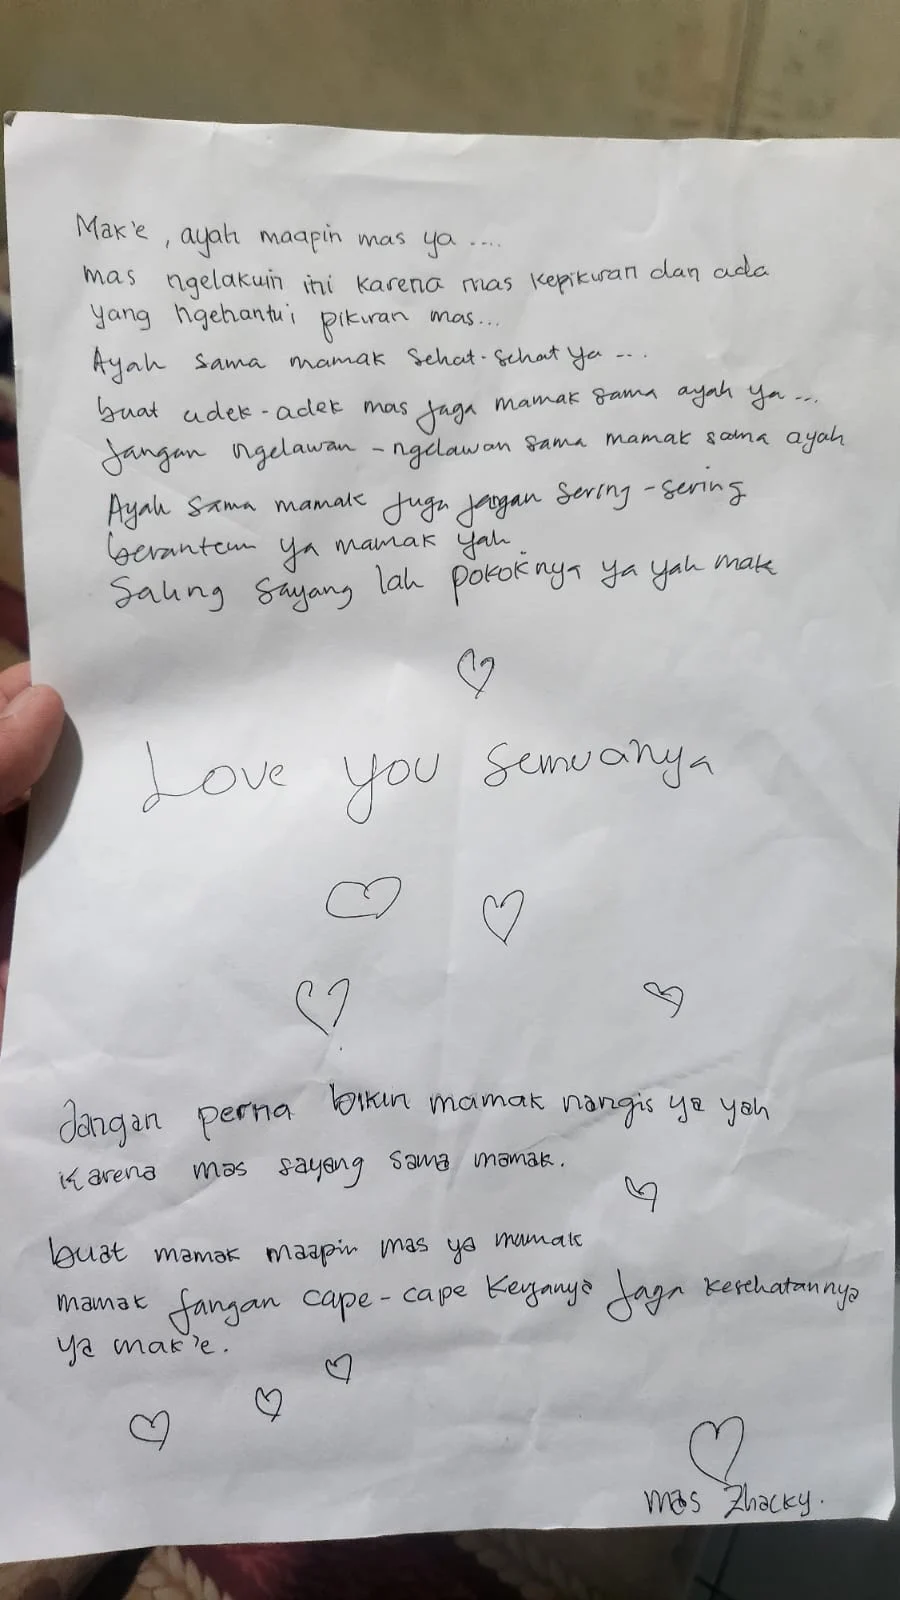 Mak'e, ayah maapin mas ya ....
mas ngelakuin ini karena mas kepikiran dan ada
yang ngehantu'i pikiran mas...
Ayah sama mamak sehat-sehat ya ....
buat adek-adek mas jaga mamak sama ayah ya ...
Jangan ngelawan-ngelawan sama mamak sama ayah
Ayah sama mamak juga jangan sering-sering
berantem ya mamak yah.
Saling sayang lah pokok'nya ya yah mak
Love you semuanya
Jangan perna bikin mamak nangis ya yah
Karena mas sayang sama mamak.
buat mamak maapin mas ya mamak
mamak jangan cape-cape kerjanya jaga kesehatannya
ya mak'e.
mas Zhacky.